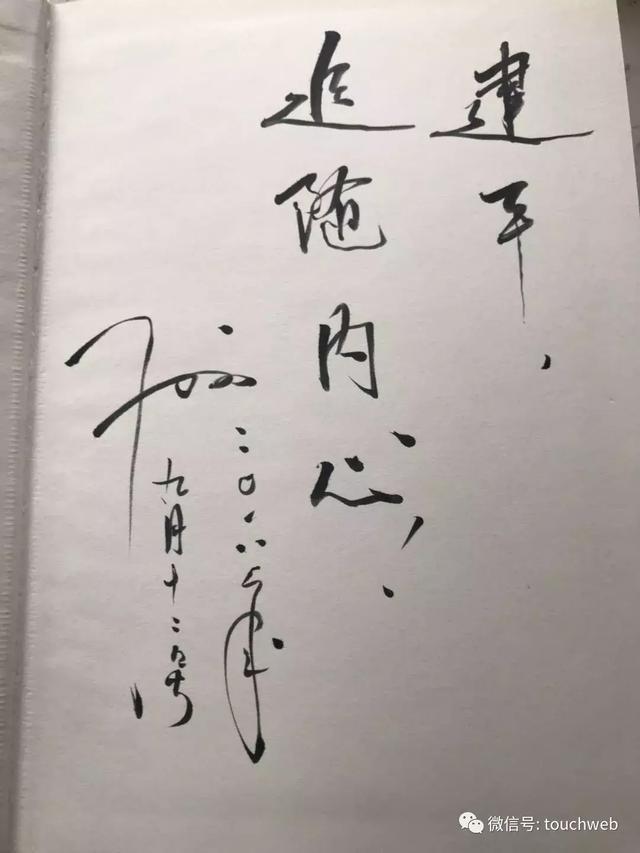 建平，
追随内心！
二〇一六年
九月十二
微信号: touchweb